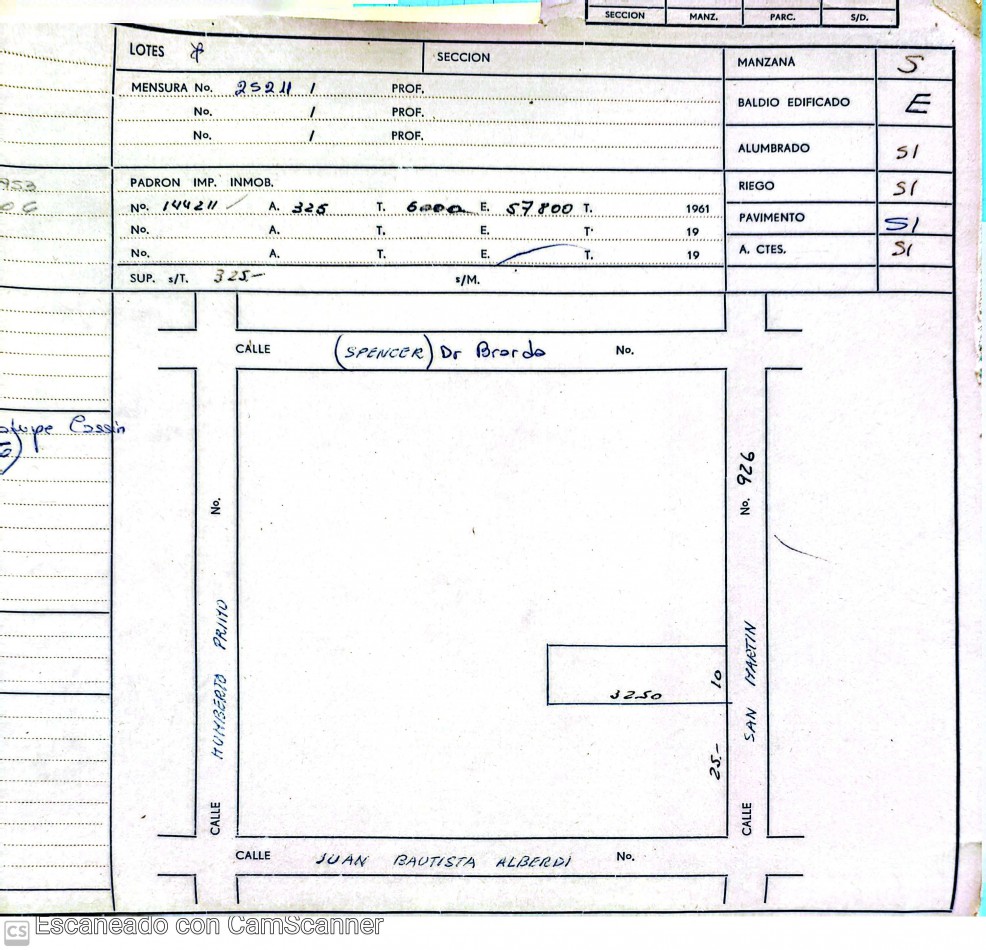 SECCION MANZ. PARC. S/D.
LOTES
SECCION
MANZANA S
MENSURA No. 25211 / PROF.
BALDIO EDIFICADO E
No. / PROF.
No. / PROF.
ALUMBRADO SI
PADRON IMP. INMOB.
RIEGO SI
No. 144211 A. 325 T. 6000 E. 57800 T. 1961
PAVIMENTO SI
No. A. T. E. T. 19
A. CTES. SI
No. A. T. E. T. 19
SUP. s/T. 325.- s/M.
CALLE (SPENCER) Dr No.
Cassin
CALLE HUMBERTO PRIMO No.
CALLE SAN MARTIN No. 926
3250
10
25.-
CALLE JUAN BAUTISTA ALBERDI No.
CS Escaneado con CamScanner